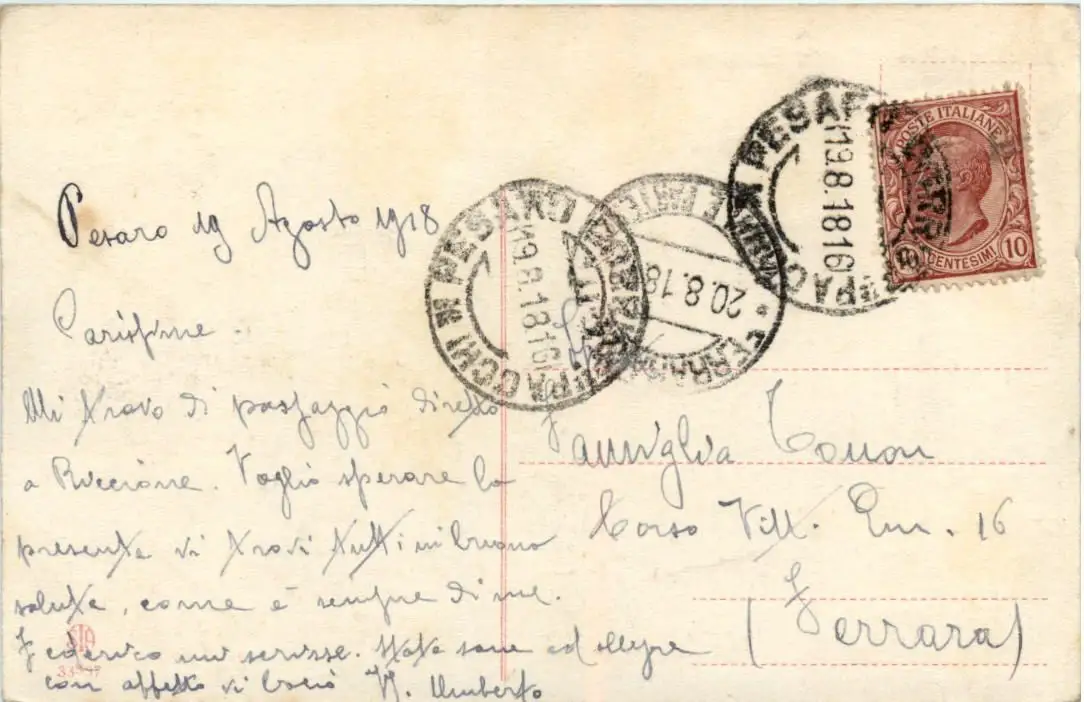 Pesaro 19 Agosto 1918
Carissime.
Mi trovo di passaggio diretto
a Riccione. Voglio sperare la
presente vi trovi tutti in buona
salute, come è sempre di me.
Federico mi scrisse. State sane ed allegre
con affetto vi bacio Umberto
STA
PESARO
19.8.18 16
PACCHI
20.8.18
FERRARA
PESARO
19.8.18 16
POSTE ITALIANE
CENTESIMI 10
Famiglia
Corso Vitt. Em. 16
(Ferrara)